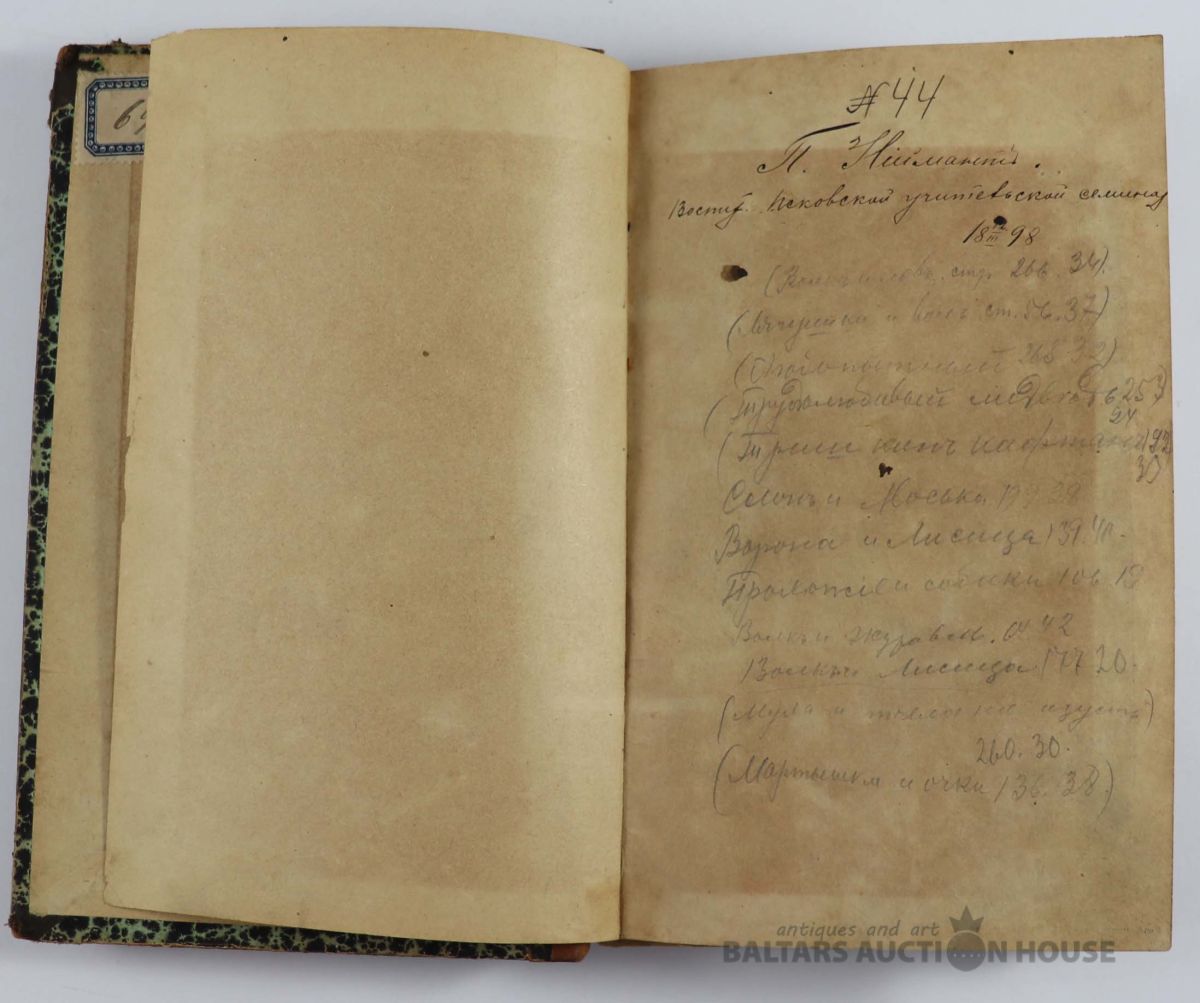 69
№ 44
П. Нійманъ.
Воспит. Псковской учительской семинар
18 III 98
стр. 266. 34)
и волкъ ст. 56. 37)
(Любопытный 268 32)
(Трудолюбивый медвѣдь 257
24
(Тришкинъ кафтанъ 192
30
Слонъ и Моська 119 28
Ворона и Лисица 139. 40.
Прохожіе и собаки 106. 13
Волкъ и журавль. 64 42
Волкъ и Лисица 177 20.
(Муха и пчела на изусть)
260. 30.
(Мартышка и очки 136. 38)
antiques and art
BALTARS AUCTION HOUSE